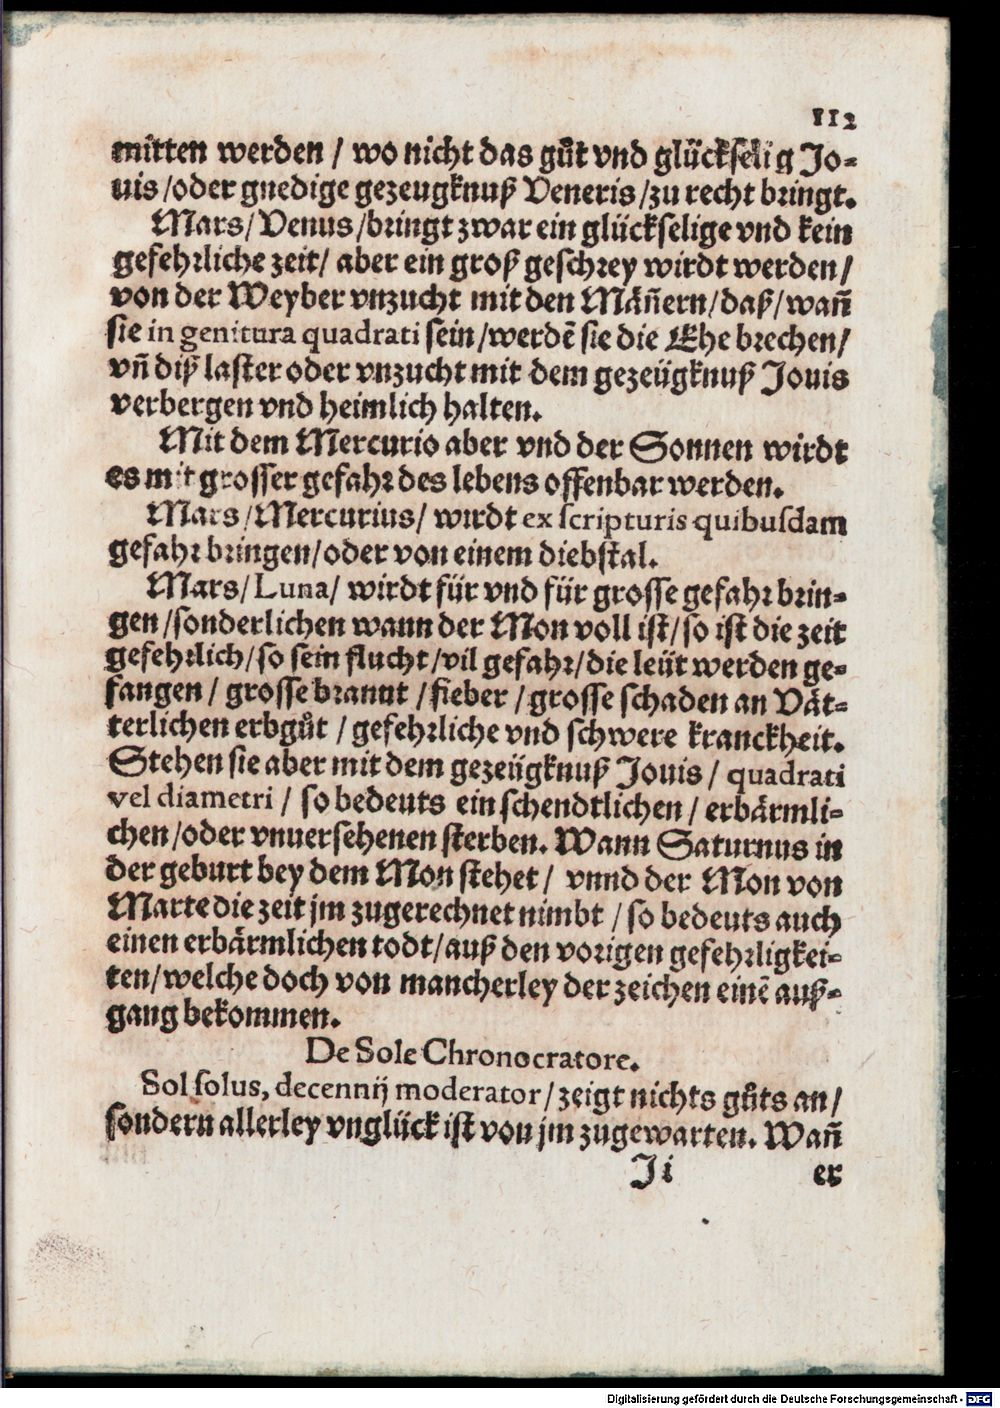 112
mitten werden / wo nicht das gůt vnd glückselig Jo-
uis /oder gnedige gezeugknuß Veneris /zu recht bringt.
Mars/ Venus /bringt zwar ein glückselige vnd kein
gefehrliche zeit/ aber ein groß geschrey wirdt werden/
von der Weyber vnzucht mit den Mäñern/daß/wañ
sie in genitura quadrati sein /werdē sie die Ehe brechen/
vñ diß laster oder vnzucht mit dem gezeügknuß Jouis
verbergen vnd heimlich halten.
Mit dem Mercurio aber vnd der Sonnen wirdt
es mit grosser gefahr des lebens offenbar werden.
Mars /Mercurius/ wirdt ex scripturis quibusdam
gefahr bringen/oder von einem diebstal.
Mars/ Luna/ wirdt für vnd für grosse gefahr brin-
gen /sonderlichen wann der Mon voll ist/so ist die zeit
gefehrlich/so sein flucht /vil gefahr/die leüt werden ge-
fangen / grosse brannt /fieber /grosse schaden an Vät-
terlichen erbgůt / gefehrliche vnd schwere kranckheit.
Stehen sie aber mit dem gezeügknuß Jouis / quadrati
vel diametri / so bedeuts ein schendtlichen / erbärmli-
chen /oder vnuersehenen sterben. Wann Saturnus in
der geburt bey dem Mon stehet / vnnd der Mon von
Marte die zeit jm zugerechnet nimbt /so bedeuts auch
einen erbärmlichen todt/auß den vorigen gefehrligkei-
ten/welche doch von mancherley der zeichen einē auß-
gang bekommen.
De Sole Chronocratore.
Sol solus, decennij moderator /zeigt nichts gůts an/
sondern allerley vnglück ist von jm zugewarten. Wañ
Ji er
Digitalisierung gefördert durch die Deutsche Forschungsgemeinschaft - DFG